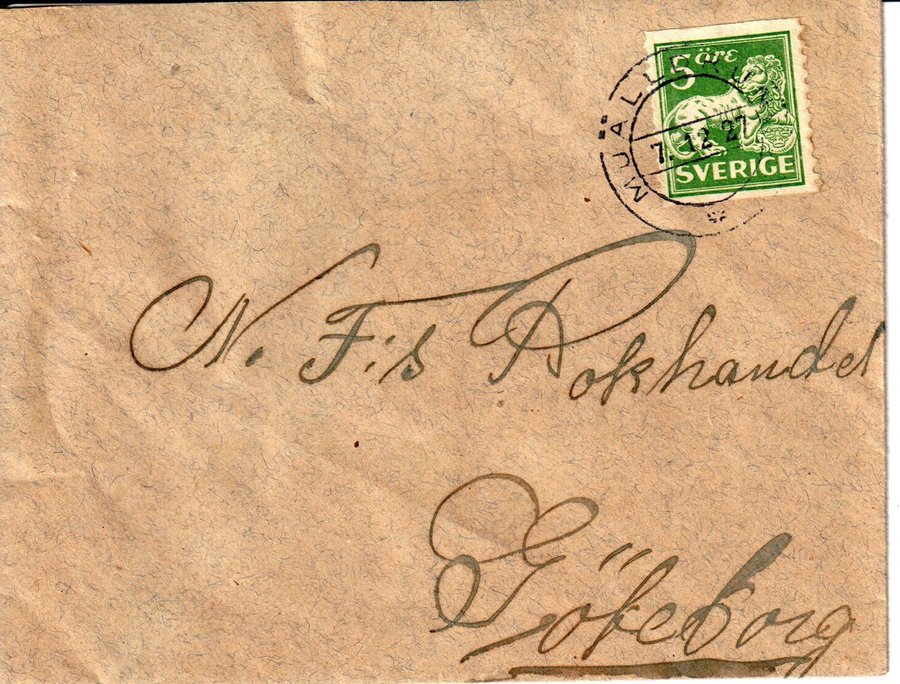 5 öre
7.12.27
SVERIGE
N. F:s Bokhandel
Göteborg